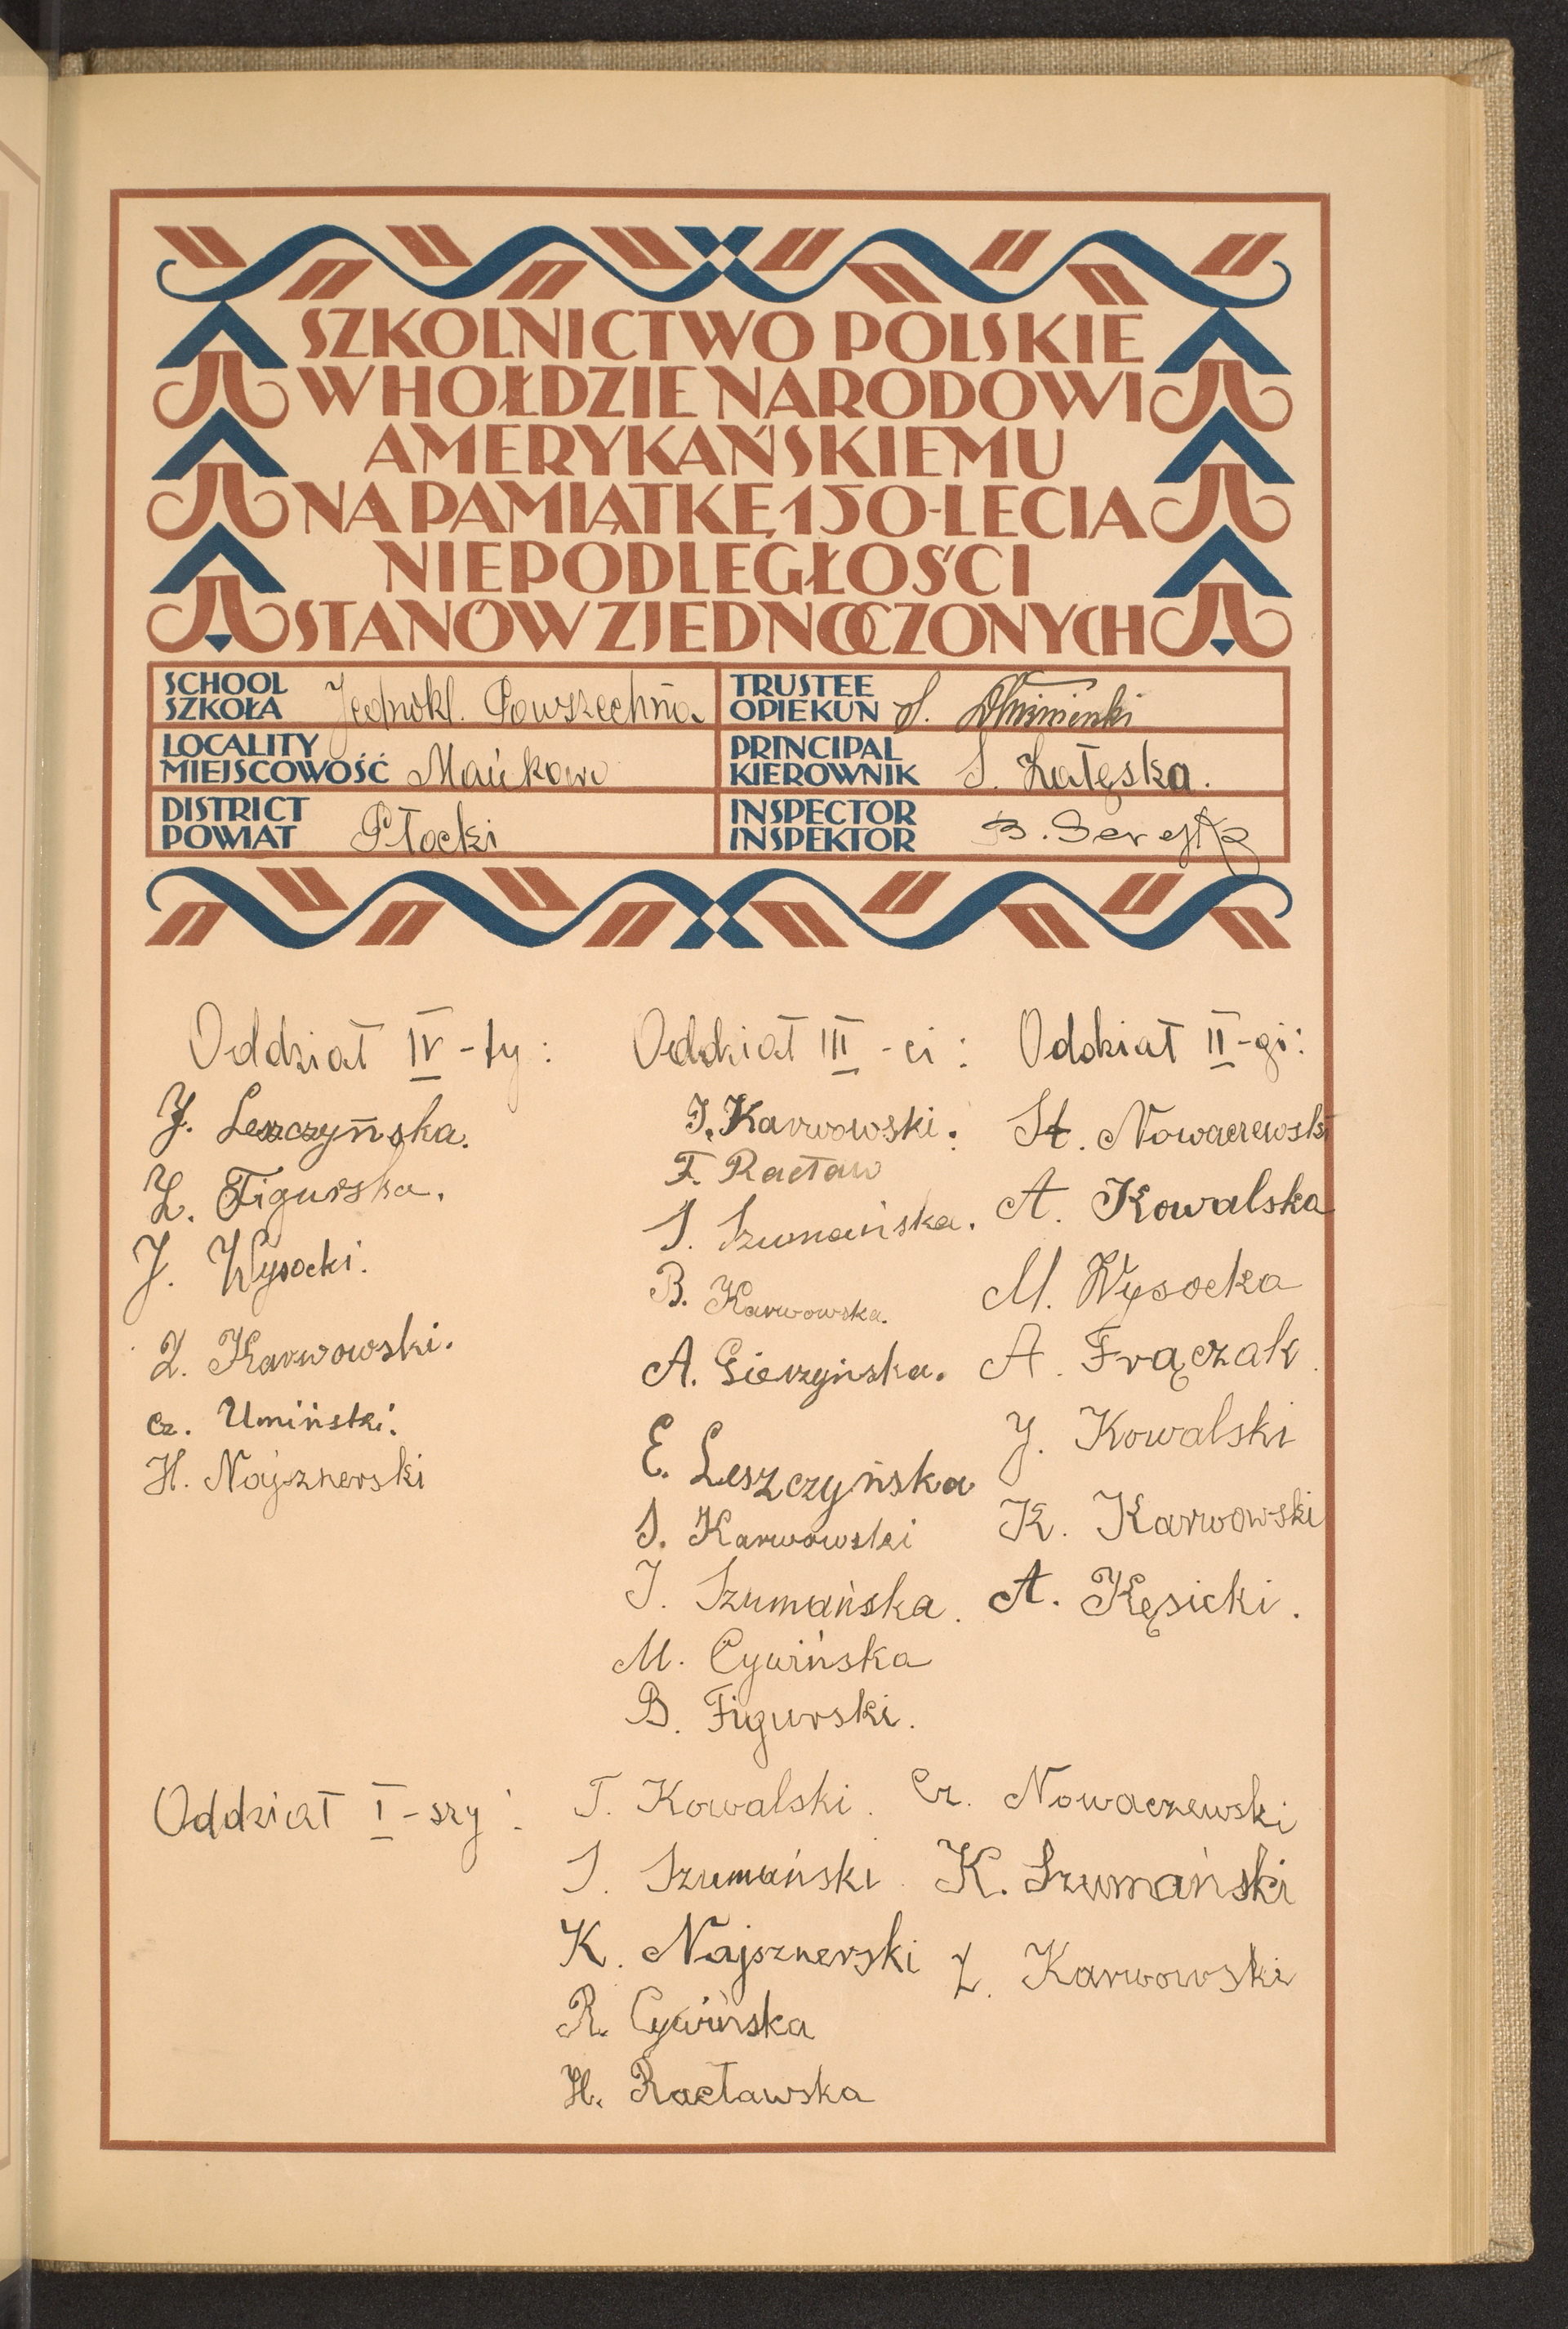 SZKOLNICTWO POLSKIE
W HOŁDZIE NARODOWI
AMERYKAŃSKIEMU
NA PAMIĄTKĘ 150-LECIA
NIEPODLEGŁOŚCI
STANÓW ZJEDNOCZONYCH
SCHOOL
SZKOŁA Jednokl. Powszechna
TRUSTEE
OPIEKUN S.
LOCALITY
MIEJSCOWOŚĆ Mańkowo
PRINCIPAL
KIEROWNIK S. Załęska.
DISTRICT
POWIAT Płocki
INSPECTOR
INSPEKTOR B. Serejko
Oddział IV-ty:
J. Leszczyńska.
Z. Figurska.
J. Wysocki.
Z. Karwowski.
Cz. Umiński.
H. Najznerski
Oddział III-ci:
J. Karwowski.
F. Racław
S. Szumańska.
B. Karwowska.
A. Gierzyńska.
E. Leszczyńska
S. Karwowski
J. Szumańska.
M. Cywińska
B. Figurski.
Oddział II-gi:
St. Nowaczewski
A. Kowalska
M. Wysocka
A. Frączak.
J. Kowalski
K. Karwowski
A. Kęsicki.
Oddział I-szy:
T. Kowalski.
S. Szumański.
K. Najsznerski
R. Cywińska
H. Racławska
Cz. Nowaczewski
K. Szumański
Z. Karwowski